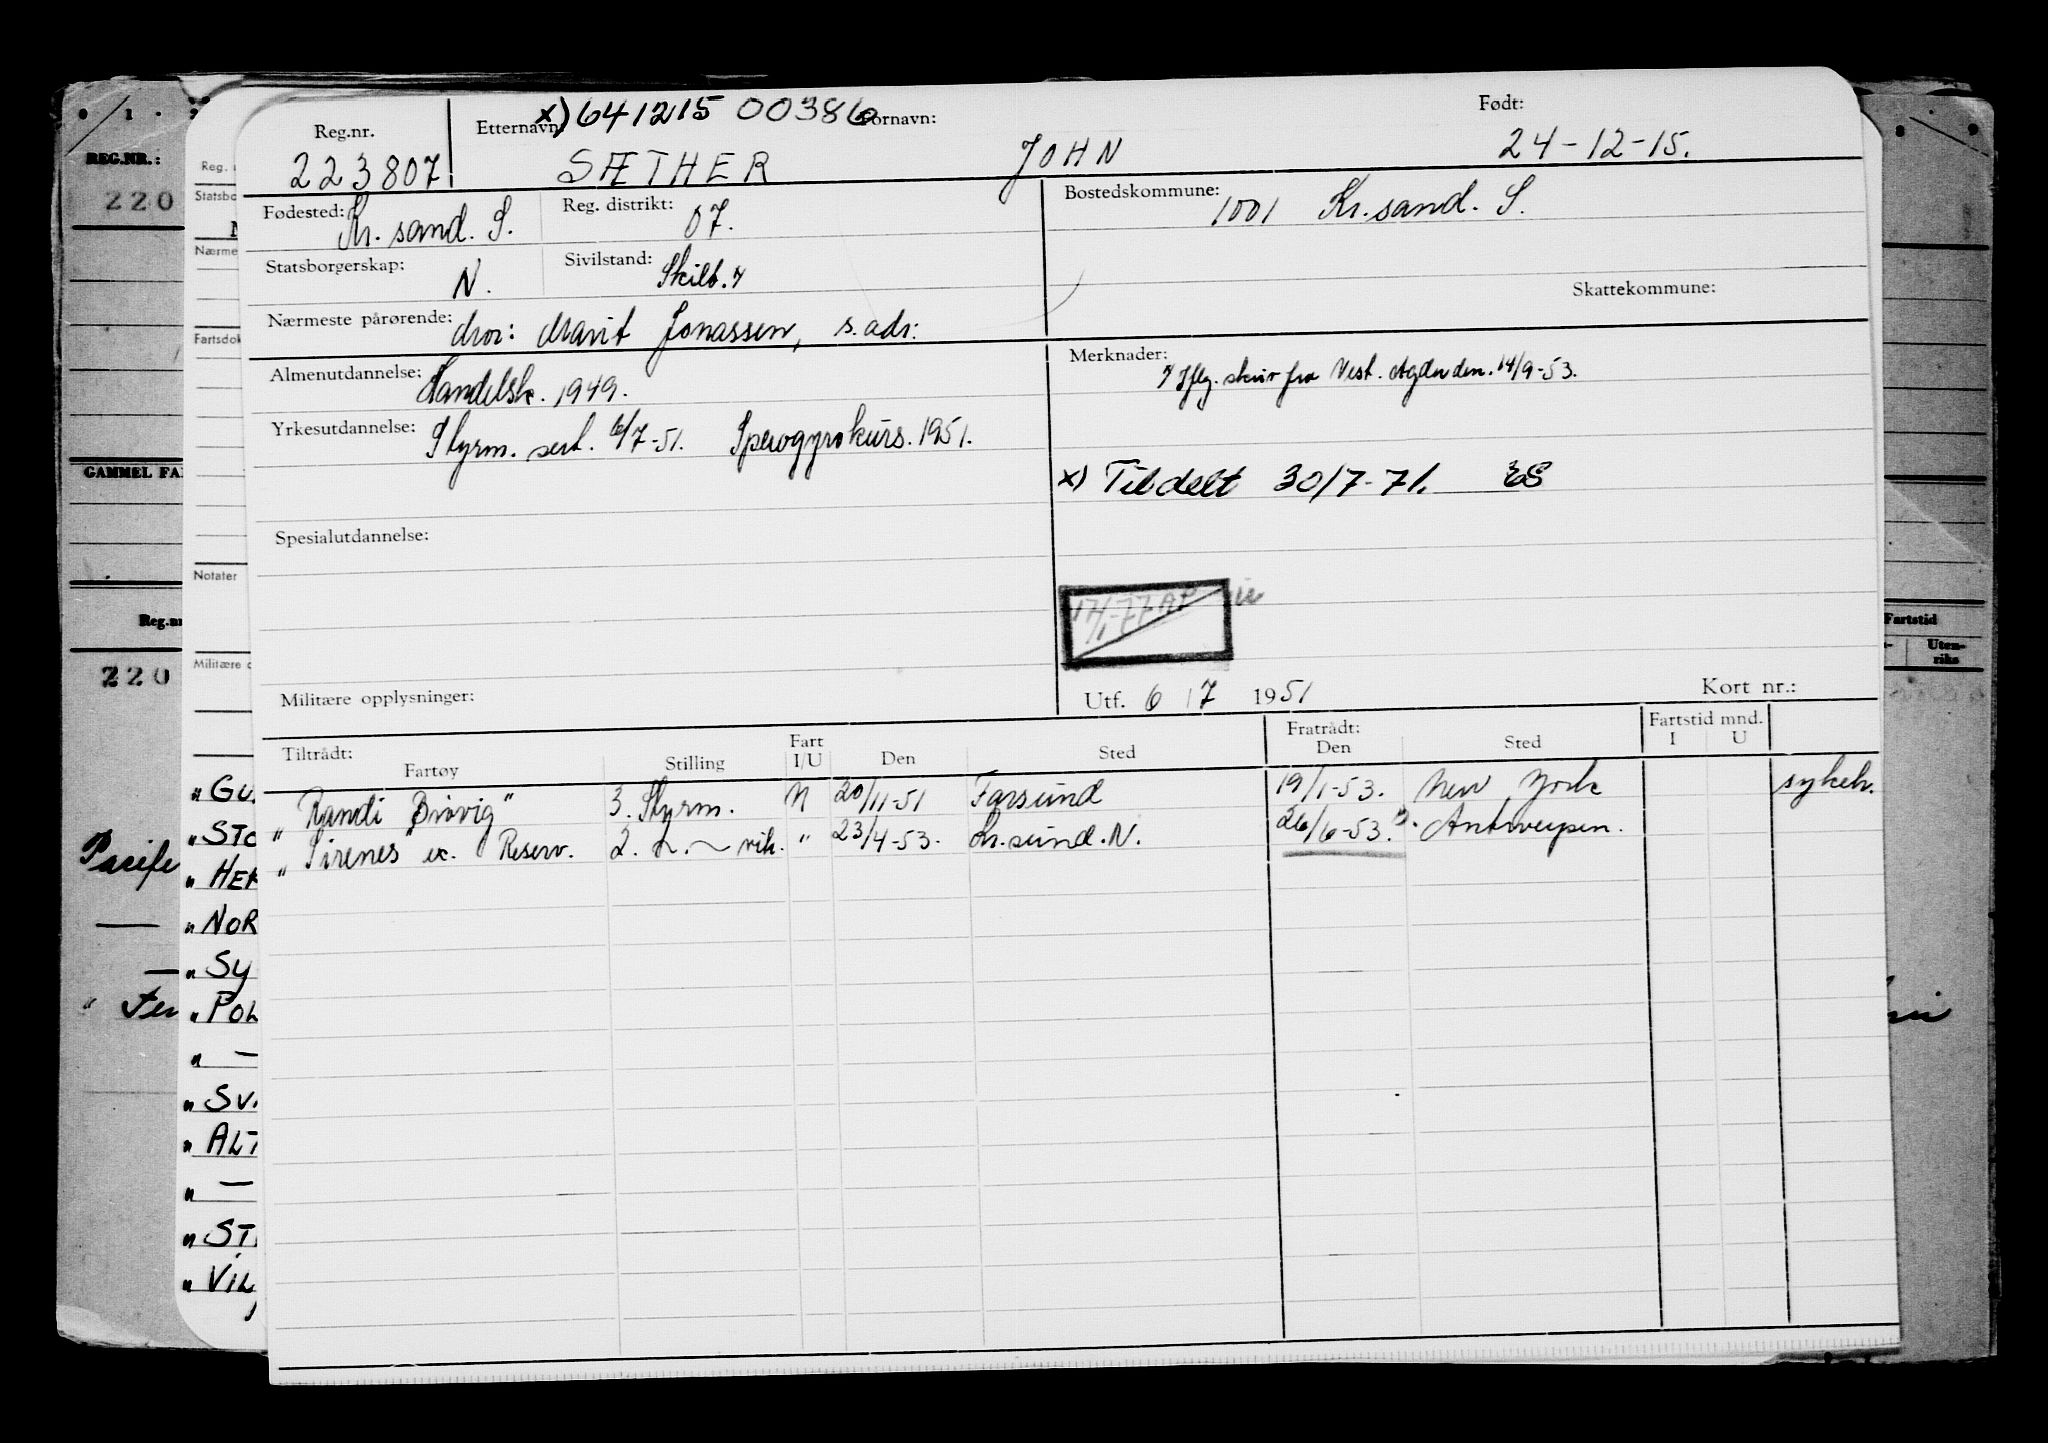 Reg.nr. Etternavn x) 641215 00386 Fornavn: Født:
223807 SÆTHER JOHN 24-12-15.
Fødested: Kr. sand. S. Reg. distrikt: 07. Bostedskommune: 1001 Kr. sand. S.
Statsborgerskap: N. Sivilstand: Skilt. Skattekommune:
Nærmeste pårørende: mor: Marit Jonassen, s. adr:
Almenutdannelse: Handelsk. 1949. Merknader: Iflg. skriv fra Vest. Agder den. 14/9-53.
Yrkesutdannelse: Styrm. sert. 6/7-51. Sperrogyrokurs. 1951.
x) Tildelt 30/7-71. ES
Spesialutdannelse:
Militære opplysninger: Utf. 6/7 1951 Kort nr.:
Tiltrådt: Fart Fratrådt: Fartstid mnd.
Fartøy Stilling I/U Den Sted Den Sted I U
" Randi Brøvig" 3. Styrm. N 20/11-51 Farsund 19/1-53. New York sykeh.
" Sirenes" ex. Reserv. 2. " vik. " 23/4-53. Kr.sund.N. 26/6-53. Antwerpen.
REG.NR.:
220
GAMMEL FA
Reg.nr
220
Pacific
" Fer
Reg.
Statsbo
Nærme
Fartsdok
Notater
Militære o
" GU
" STO
" HER
" NOR
" SY
" POL
" —
" SV
" ALT
" —
" ST
" VIL
Fartstid
Uten-
riks